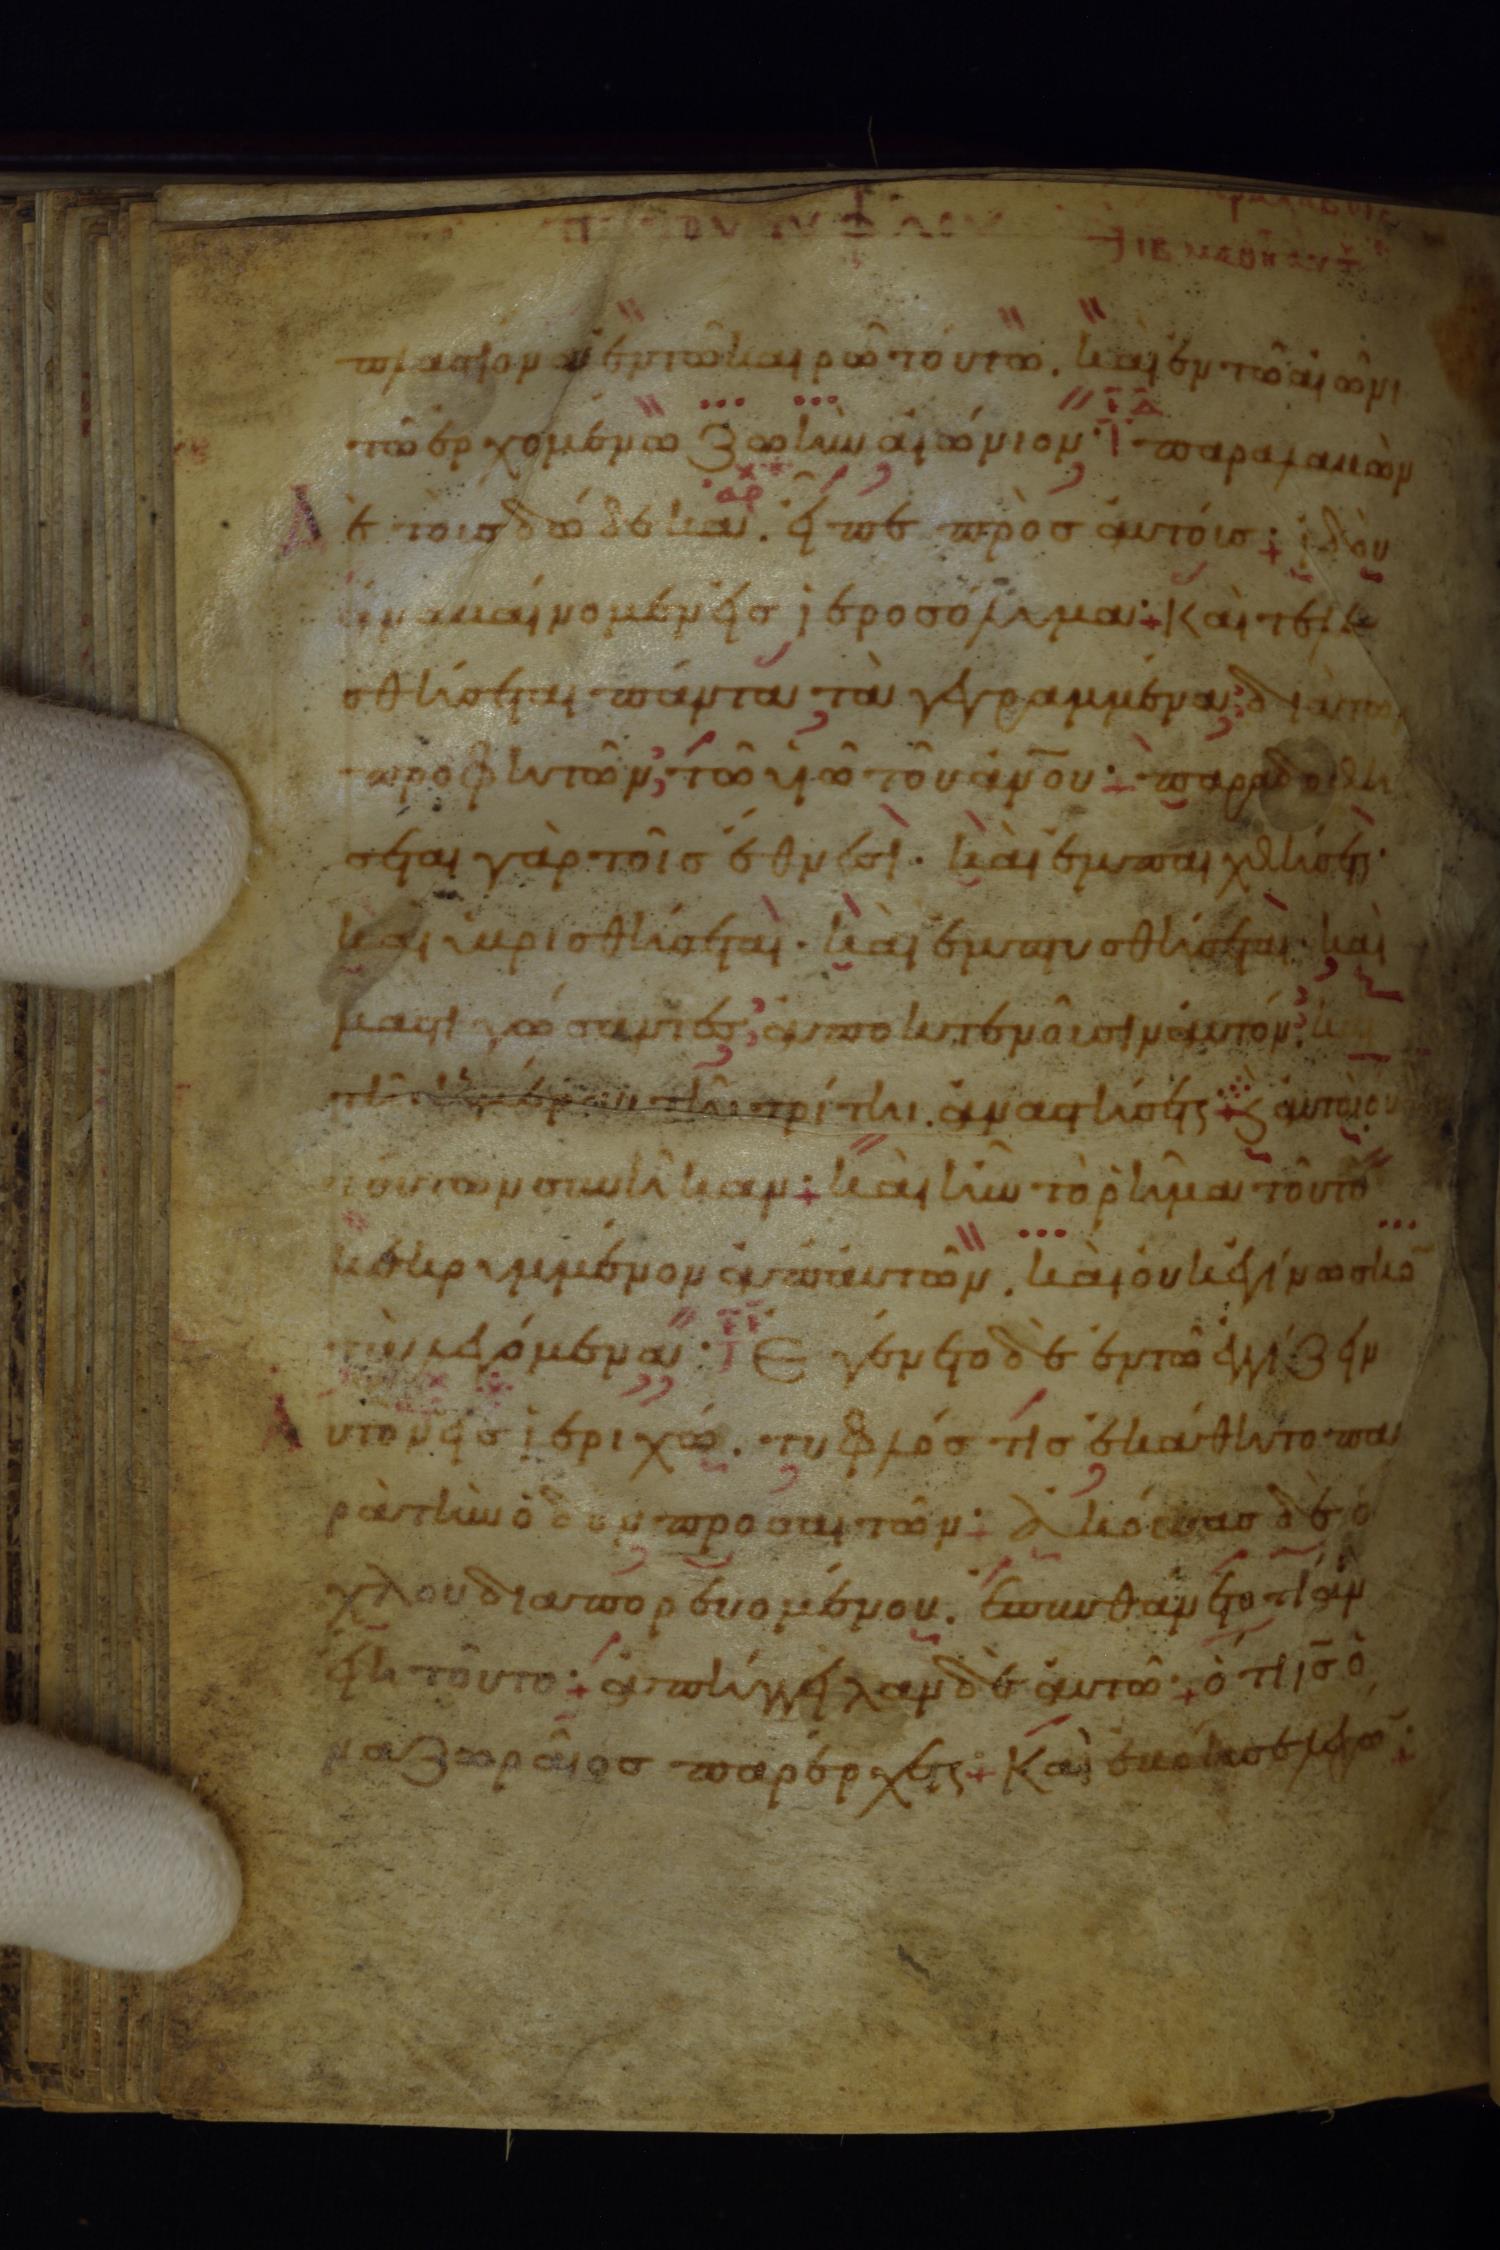 πλασίονα ἐν τῶ καιρῶ τούτω. καὶ ἐν τῶ αἰῶνι
τῶ ἐρχομένω ζωὴν αἰώνιον· παραλαβὼν
δὲ τοὺς δώδεκα. εἶπε πρὸς αὐτούς· ἰδοὺ
ἀναβαίνομεν εἰς ἱεροσόλυμα· καὶ τελε
σθήσεται πάντα τὰ γεγραμμένα διὰ τῶν
προφητῶν, τῶ υἱῶ τοῦ ἀνου· παραδοθη
σεται γὰρ τοῖς ἔθνεσι. καὶ ἐμπαιχθήσετ·
καὶ ὑβρισθήσεται. καὶ ἐμπτυσθήσεται. καὶ
μαστιγώσαντες, ἀποκτενοῦσιν αὐτόν· καὶ
τῆ ἡμέρα τῆ τρίτη. ἀναστήσετ· ϗ αὐτοὶ οὐ
τούτων συνῆκαν· καὶ ἦν τὸ ῥῆμα τοῦτο
κεκρυμμένον ἀπ' αὐτῶν. καὶ οὐκ ἐγίνωσκο
τὰ λεγόμενα· Ἐγένετο δὲ ἐν τῶ ἐγγίζειν
αὐτὸν εἰς ἱεριχώ. τυφλός τις ἐκάθητο πα
ρὰ τὴν ὁδὸν προσαιτῶν· ἀκούσας δὲ ὄ
χλου διαπορευομένου. ἐπυνθάνετο τί ἂν
εἴη τοῦτο· ἀπήγγειλαν δὲ αὐτῶ· ὅτι ις ὁ
ναζωραῖος παρέρχετ· Καὶ ἐβόησε λέγω